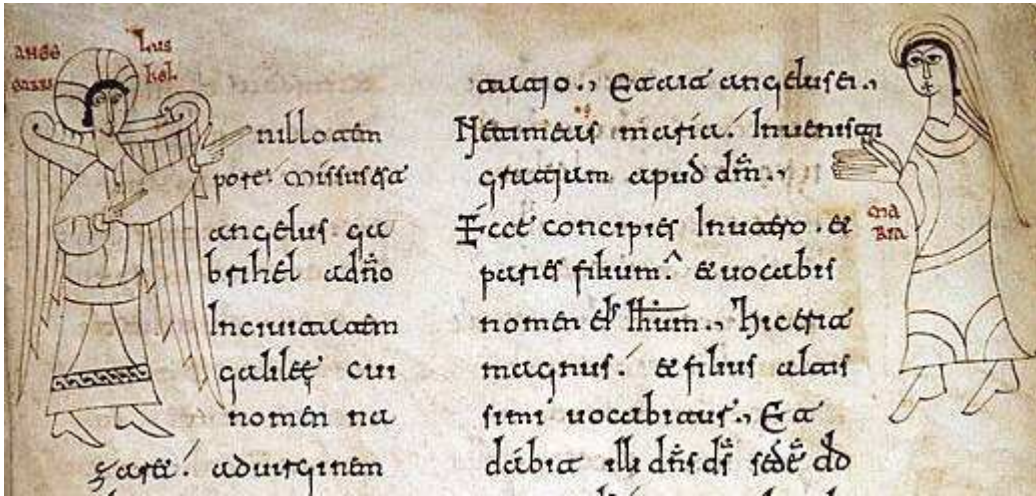 ANGE LUS
GABRI HEL
nillo tem
pore: Missus est
angelus ga
brihel adño
Inciuitatem
galileę cui
nomen na
zaret: aduirginem
tatio., Et ait angelus ei.,
Ne timeas maria: Inuenisti
gratiam apud dm̃.,
Ecce concipies Inutero. et
paries filium. et uocabis
nomen hic erit
magnus: et filius altis
simi uocabitur., Et
dabit illi dñs ds̃ sedẽ
MA
RIA